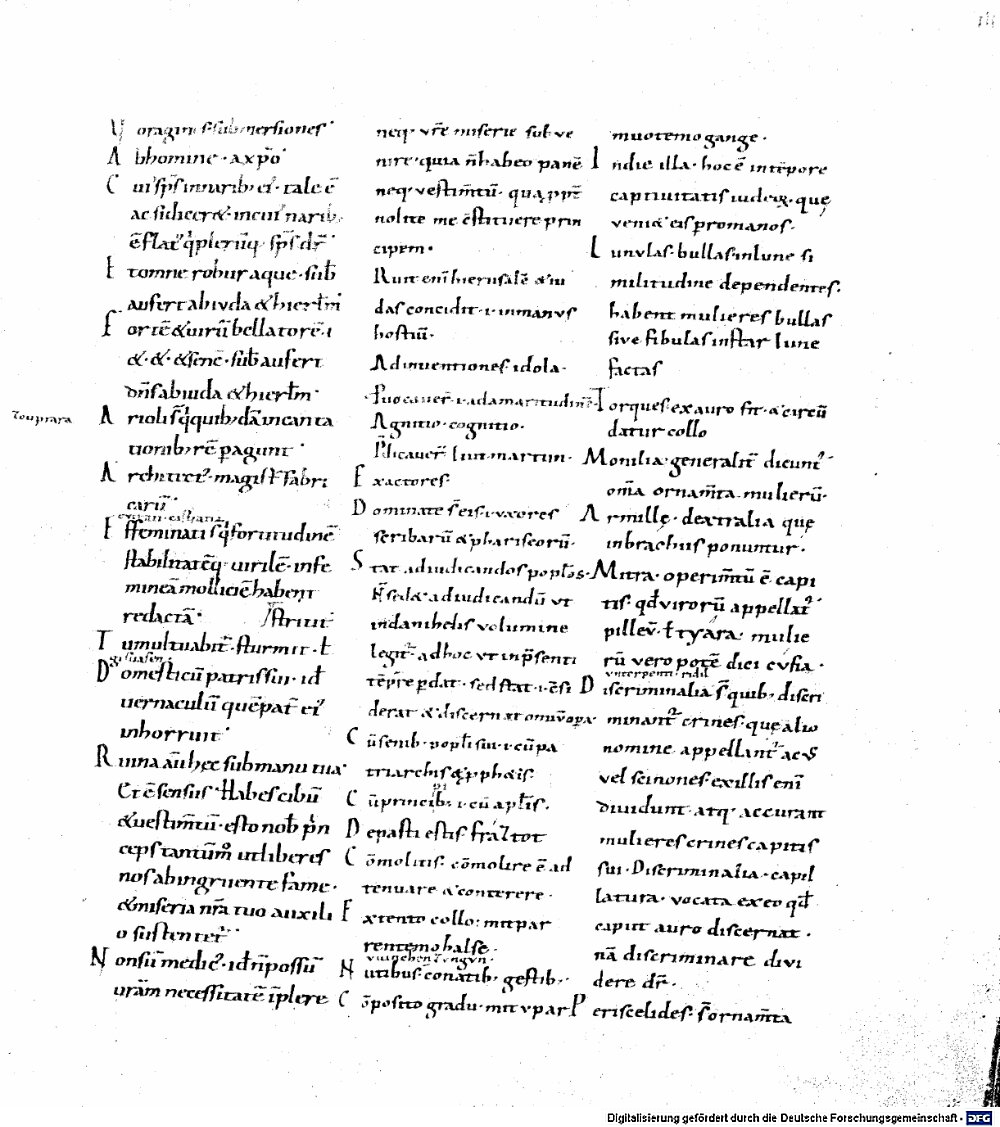 Voragini s̄ submersiones
Abhomine · a xp̄o
Cui sp̄s in narib; eĩ · tale ē
ac si diceret · in cui' narib;
ē flat' q̇ plerūq; sp̄s dr̄
Et omne robur aque · sub
aufert a biuda & hierl̄m
Fortē & uirū bellatorē · i
& · & · & senē · sub aufert
dn̄s a biuda & hierl̄m ·
Arioli s̄ q̇ quib;dā incanta
tionib; rē pagunt
touprara
Architect' · magist̄ fabri
cariū
Effeminati s̄ q̇ fortitudinē
stabilitatēq; uirilē · infe
mineā molliciē habent
redactā · strituit
Tumultuabit̄ · sturmit · ł
Domesticū patris sui · id
uernaculū quē pat̄ ei'
inhorruit
Ruina aū hec sub manu tua
Et ē sensus · Habes cibū
& uestim̄tū · esto nob̄ p̄n
ceps tantūm̊ ut liberes
nos ab ingruente fame ·
& miseria nr̄a tuo auxili
o sustentet̄ ·
Non sū medic' · id n̄ possū
ur̄am necessitatē īplere
neq; vr̄e miserie sub ve
nire · quia n̄ habeo panē
neq; vestim̄tū · quap̄pt̄
nolite me c̄stituere prin
cipem ·
Ruit enī hierusalē & iu
das concidit · i · in manus
hostiū ·
Adinventiones · idola ·
Puocauer̄ · i · ad amaritudinē
Agnitio · cognitio ·
P̄dicauer̄ · liut martun ·
Exactores ·
Dominate s̄ eis · i · uxores
scribarū & phariseorū ·
Stat adiudicandos popl̄os ·
E sedet adiudicandū ut
in danihelis volumine
legit̄ · adhoc ut inp̄senti
tēp̄re p̄dat · sed stat · i · c̄si
derat & discernat omniū opa ·
Cū senib; · popl̄i sui · i · cū pa
triarchis & pphetis ·
Cū princib; · i · cū apl̄is ·
Depasti estis · frâztot
Cōmolitis · cōmolire ē ad
tenuare & conterere ·
Extento collo · mitpar
rentemo halse ·
Nutibus · conatib; · gestib; ·
Cōposito gradu · mit v par
muotemo gange ·
In die illa · hoc ē in tēpore
captiuitatis iudeor̄ · que
veniet eis p romanos ·
Lunulas · bullas in lune si
militudine dependentes ·
habent mulieres bullas
sive fibulas instar lune
factas
Torques · ex auro fit · & circū
datur collo
Monilia · generalit̄ dicunt̄ ·
om̄ia ornam̄ta mulierū ·
Armille · dextralia que
in brachiis ponuntur ·
Mitra · operim̄tū ē capi
tis · qd̄ virorū appellat̄ ·
pilleū · ł tyara · mulie
rū vero potē dici cufia ·
Discriminalia s̄ quib; discri
minant̄ crines · que alio
nomine appellant̄ acus
vel scinones · ex illis enī
dividunt atq; accurant
mulieres crines capitis
sui · Discriminalia · capil
latura · vocata ex eo qd̄
caput auro discernat ·
nā discriminare divi
dere dr̄ ·
Periscelides · s̄ ornam̄ta
Digitalisierung gefördert durch die Deutsche Forschungsgemeinschaft - DFG